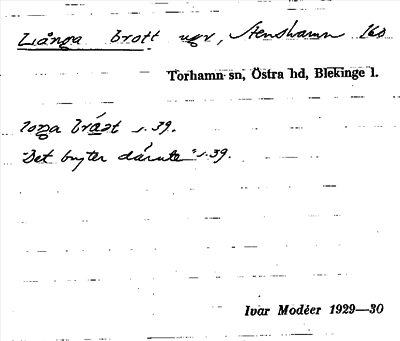 Långa brott ugr, Stenshamn 160
Torhamn sn, Östra hd, Blekinge l.
s. 39.
"Det bryter därute" s. 39.
Ivar Modéer 1929—30